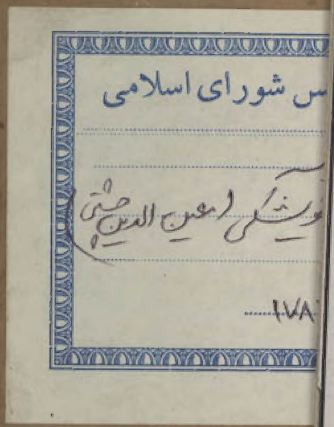 س شورای اسلامی
ویشگی (معین الدین چشتی)
۱۷۸